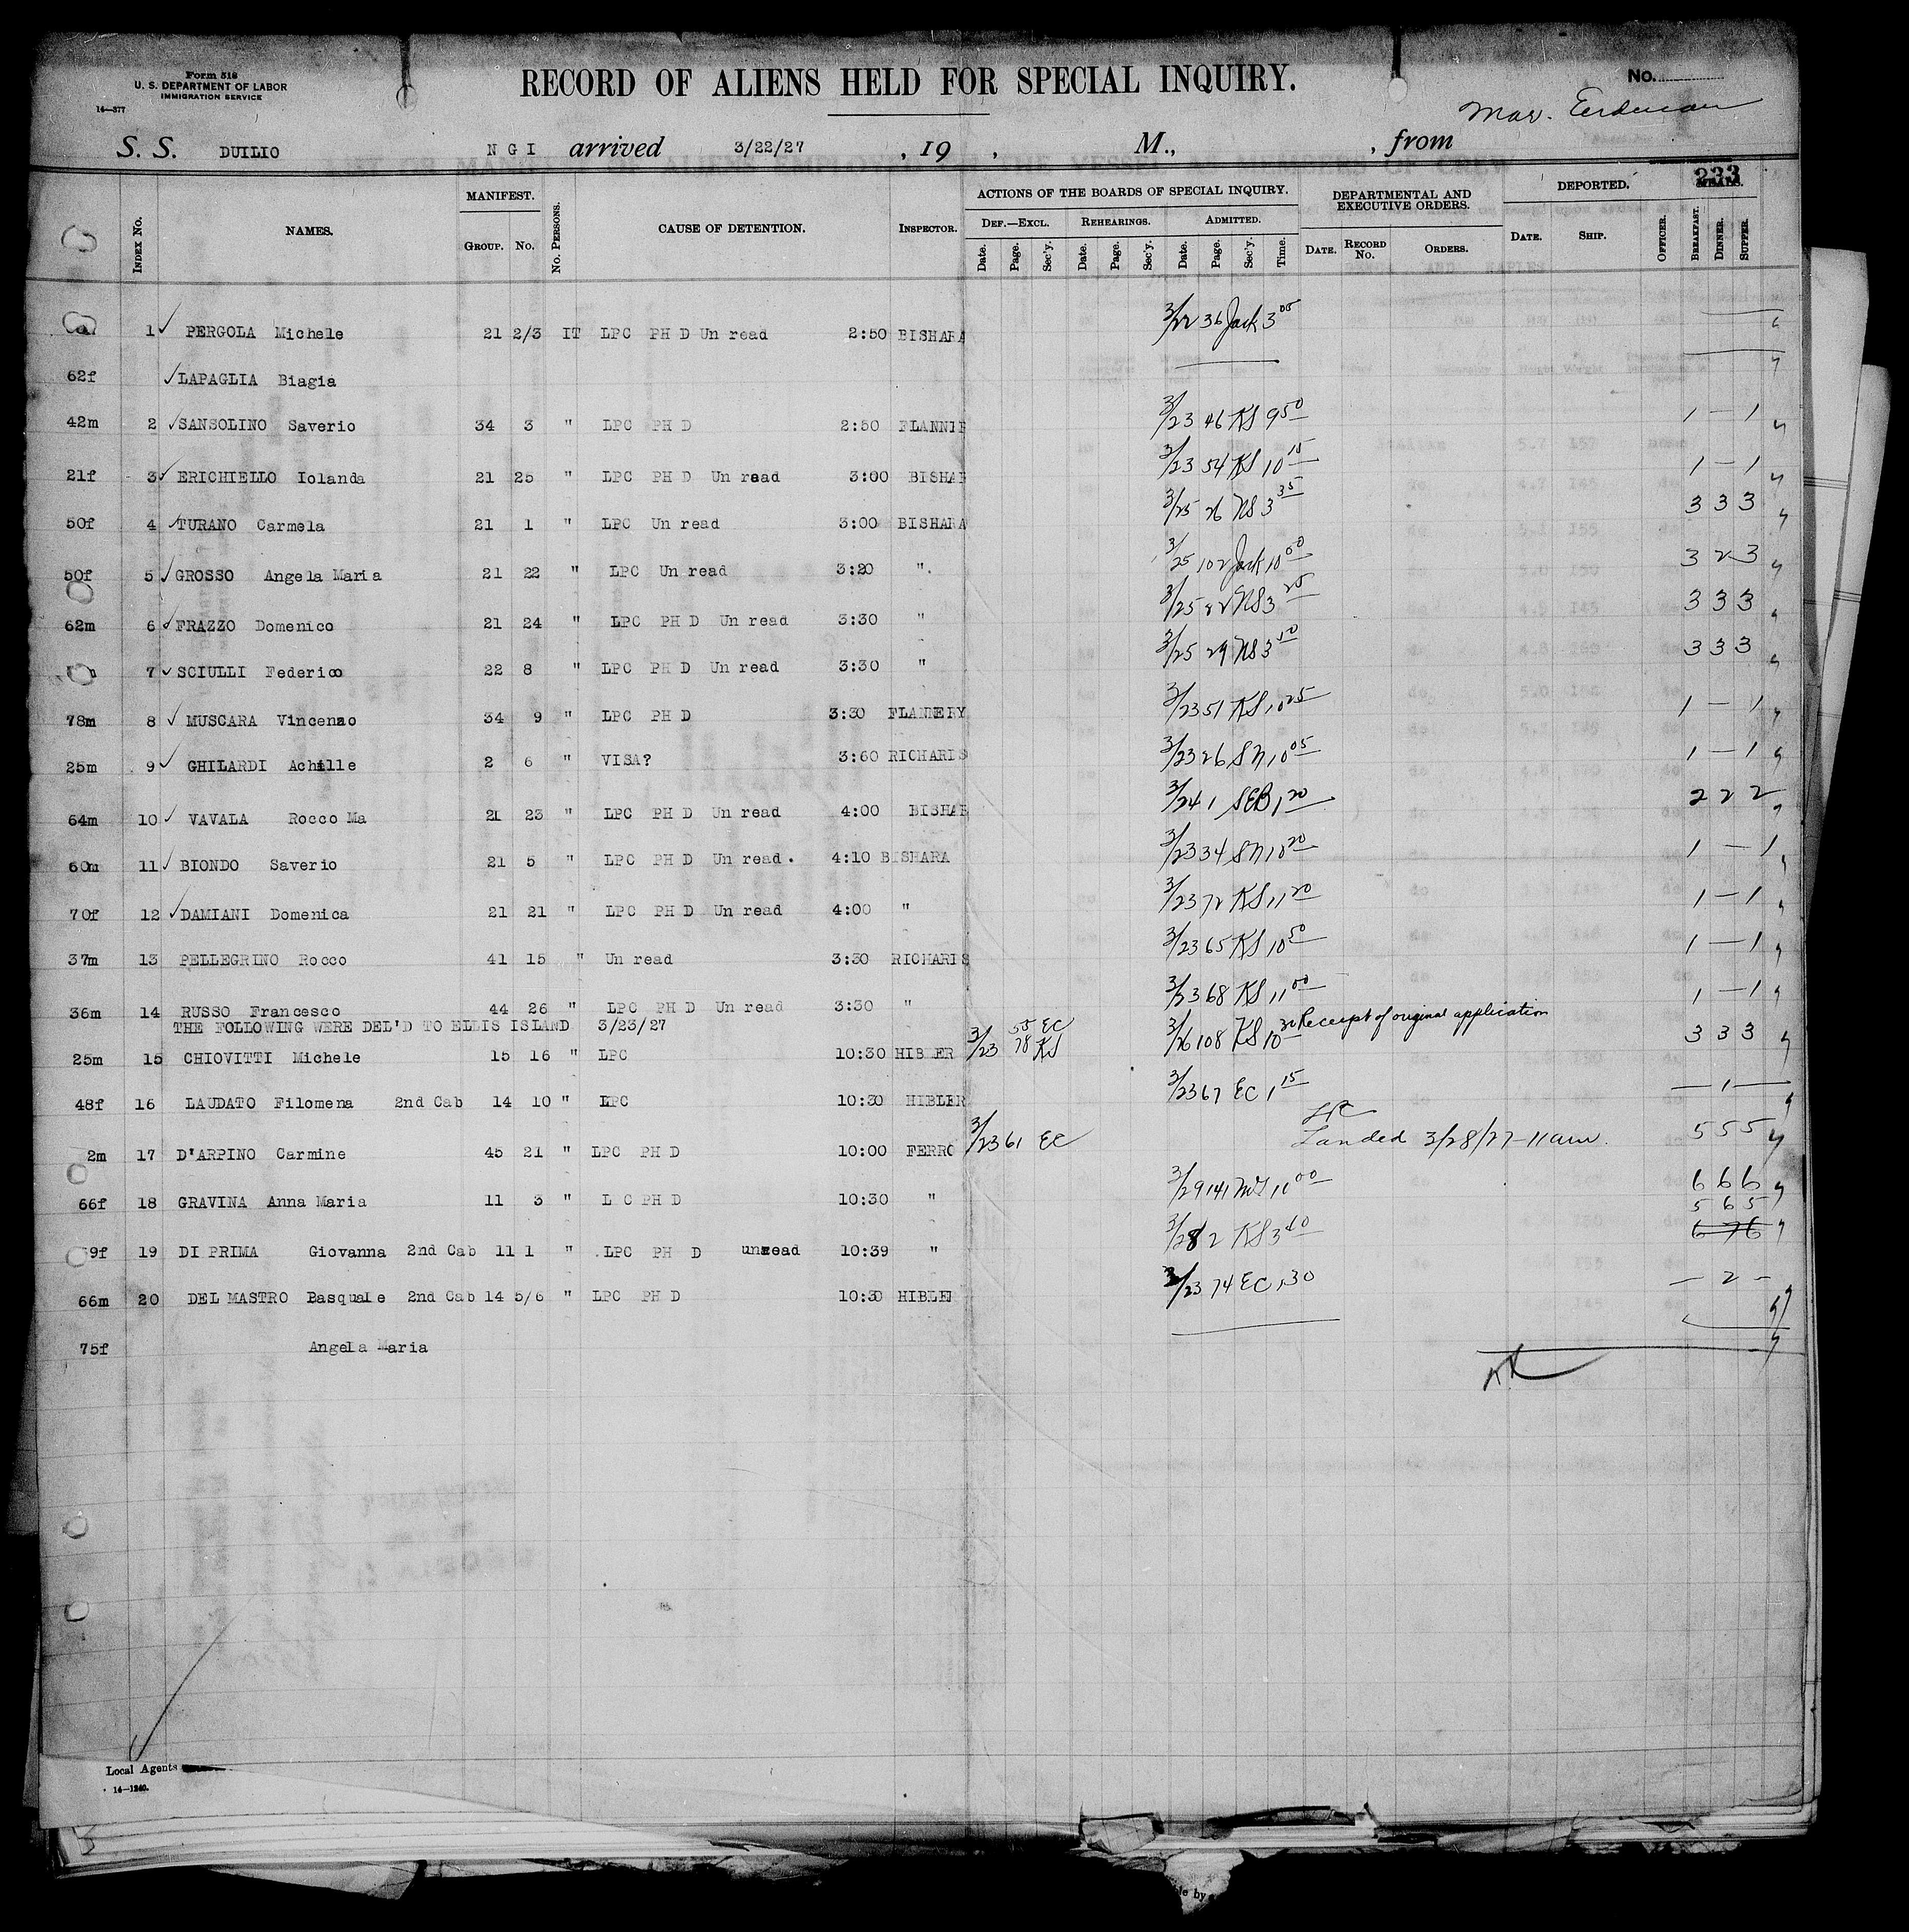 Form 518
U. S. DEPARTMENT OF LABOR
IMMIGRATION SERVICE
14—377
RECORD OF ALIENS HELD FOR SPECIAL INQUIRY.
No.
Mar.
S. S. DUILIO N G I arrived 3/22/27 , 19 , M., , from
233
INDEX NO. NAMES. MANIFEST. GROUP. NO. NO. PERSONS. CAUSE OF DETENTION. INSPECTOR. ACTIONS OF THE BOARDS OF SPECIAL INQUIRY. DEF.—EXCL. Date. Page. Sec'y. REHEARINGS. Date. Page. Sec'y. ADMITTED. Date. Page. Sec'y. Time. DEPARTMENTAL AND EXECUTIVE ORDERS. DATE. RECORD NO. ORDERS. DEPORTED. DATE. SHIP. OFFICER. BREAKFAST. DINNER. SUPPER.
1 PERGOLA Michele 21 2/3 IT LPC PH D Un read 2:50 BISHARA 3/22 36 Jack 3 00
62f LAPAGLIA Biagia
42m 2 SANSOLINO Saverio 34 3 " LPC PH D 2:50 FLANNIE 3/23 46 KS 9 50 1 — 1
21f 3 ERICHIELLO Iolanda 21 25 " LPC PH D Un read 3:00 BISHAR 3/23 54 KS 10 15 1 — 1
50f 4 TURANO Carmela 21 1 " LPC Un read 3:00 BISHARA 3/25 26 NS 3 35 3 3 3
50f 5 GROSSO Angela Maria 21 22 " LPC Un read 3:20 ". 3/25 102 Jack 10 00 3 2 3
62m 6 FRAZZO Domenico 21 24 " LPC PH D Un read 3:30 " 3/25 22 NS 3 25 3 3 3
7 SCIULLI Federico 22 8 " LPC PH D Un read 3:30 " 3/25 29 NS 3 50 3 3 3
78m 8 MUSCARA Vincenzo 34 9 " LPC PH D 3:30 FLANNERY 3/23 51 KS 10 25 1 — 1
25m 9 GHILARDI Achille 2 6 " VISA? 3:60 RICHARDS 3/23 26 SN 10 05 1 — 1
64m 10 VAVALA Rocco Ma 21 23 " LPC PH D Un read 4:00 BISHAR 3/24 1 SEB 1 20 2 2 2
60m 11 BIONDO Saverio 21 5 " LPC PH D Un read. 4:10 BISHARA 3/23 34 SN 10 20 1 — 1
70f 12 DAMIANI Domenica 21 21 " LPC PH D Un read 4:00 " 3/23 72 KS 11 20 1 — 1
37m 13 PELLEGRINO Rocco 41 15 " Un read 3:30 RICHARIS 3/23 65 KS 10 50 1 — 1
36m 14 RUSSO Francesco 44 26 " LPC PH D Un read 3:30 " 3/23 68 KS 11 00 1 — 1
THE FOLLOWING WERE DEL'D TO ELLIS ISLAND 3/23/27
25m 15 CHIOVITTI Michele 15 16 " LPC 10:30 HIBLER 3/23 55 EC 78 KS 3/26 108 KS 10 30 Receipt of original application 3 3 3
48f 16 LAUDATO Filomena 2nd Cab 14 10 " LPC 10:30 HIBLER 3/23 67 EC 1 15 — 1 —
2m 17 D'ARPINO Carmine 45 21 " LPC PH D 10:00 FERRO 3/23 61 EC Landed 3/28/27 — 11 am. 5 5 5
66f 18 GRAVINA Anna Maria 11 3 " L C PH D 10:30 " 3/29 141 10 00 6 6 6
5 6 5
59f 19 DI PRIMA Giovanna 2nd Cab 11 1 " .LPC PH D unread 10:39 " 3/28 2 KS 3 40 6 7 6
66m 20 DEL MASTRO Pasquale 2nd Cab 14 5/6 " LPC PH D 10:30 HIBLER 3/23 74 EC 1 30 — 2 —
75f Angela Maria
Local Agents
14—1240.